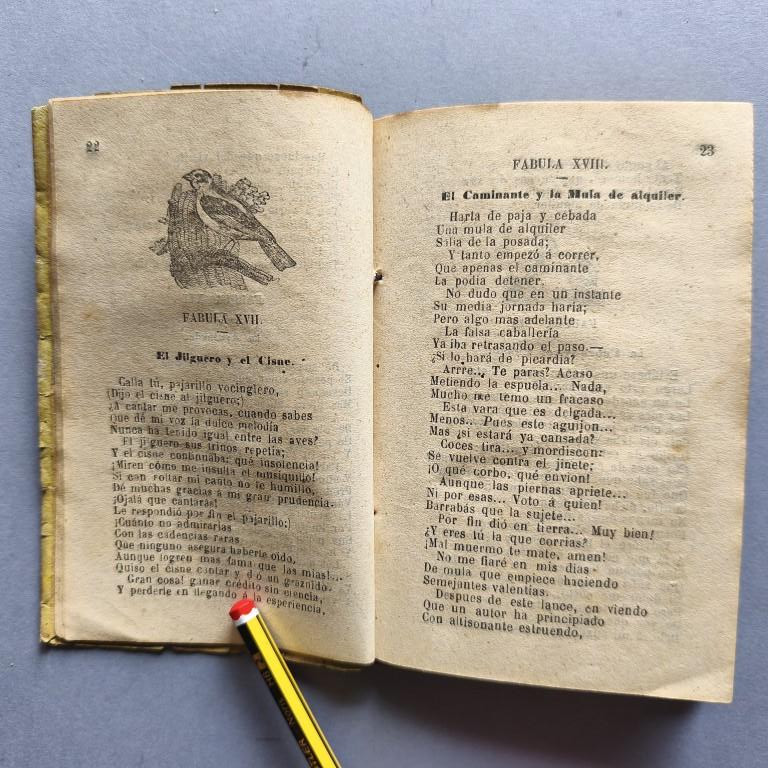 22
FABULA XVII.
El Jilguero y el Cisne.
Calla tú, pajarillo vocinglero,
(Dijo el cisne al jilguero;)
¿A cantar me provocas, cuando sabes
Que de mi voz la dulce melodía
Nunca ha tenido igual entre las aves?
El jilguero sus trinos repetia;
Y el cisne continuaba: qué insolencia!
¡Miren cómo me insulta el musiquillo!
Si con soltar mi canto no le humillo,
Dé muchas gracias á mi gran prudencia.
¡Ojalá que cantaras!
Le respondió por fin el pajarillo;
¡Cuánto no admirarias
Con las cadencias raras
Que ninguno asegura haberte oido,
Aunque logren mas fama que las mias!...
Quiso el cisne cantar y dió un graznido.
Gran cosa! ganar crédito sin ciencia,
Y perderle en llegando á la esperiencia.
23
FABULA XVIII.
El Caminante y la Mula de alquiler.
Harta de paja y cebada
Una mula de alquiler
Salia de la posada;
Y tanto empezó á correr,
Que apenas el caminante
La podia detener.
No dudo que en un instante
Su media jornada haria;
Pero algo mas adelante
La falsa caballería
Ya iba retrasando el paso.—
¿Si lo hará de picardia?
Arrre... Te paras? Acaso
Metiendo la espuela... Nada,
Mucho me temo un fracaso
Esta vara que es delgada...
Menos... Pues este aguijon...
Mas ¿si estará ya cansada?
Coces tira... y mordiscon:
Se vuelve contra el jinete;
¡O qué corbo, qué envion!
Aunque las piernas apriete...
Ni por esas... Voto á quien!
Barrabás que la sujete...
Por fin dió en tierra... Muy bien!
¿Y eres tú la que corrias?
¡Mal muermo te mate, amen!
No me fiaré en mis dias
De mula que empiece haciendo
Semejantes valentías.
Despues de este lance, en viendo
Que un autor ha principiado
Con altisonante estruendo,